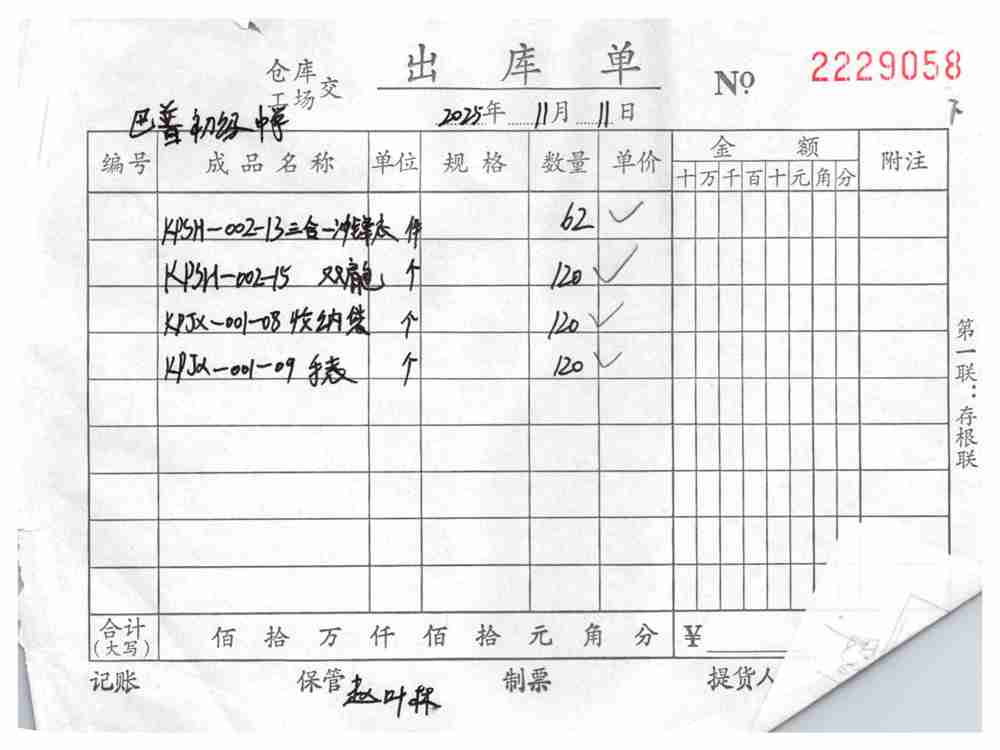 出库单
仓库
工场 交
№ 2229058
巴普初级中学
2025年11月11日
编号 成品名称 单位 规格 数量 单价 金额 附注
十 万 千 百 十 元 角 分
KPSH-002-13三合一冲锋衣 件 62 ✓
KPSH-002-15 双肩包 个 120 ✓
KPJX-001-08 收纳袋 个 120 ✓
KPJX-001-09 手表 个 120 ✓
第一联：存根联
合计 佰 拾 万 仟 佰 拾 元 角 分 ¥
(大写)
记账 保管 赵叶林 制票 提货人